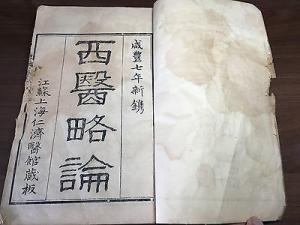 咸豐七年新鐫
西醫略論
江蘇上海仁濟醫館藏板